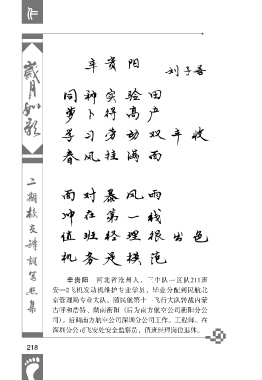 作
岁月如歌
二期校友诗词写照集
辛贵阳
刘子吾
同种实验田
萝卜得高产
学习劳动双丰收
春风挂满面
面对暴风雨
冲在第一线
值班经理很出色
机务是模范
辛贵阳 河北省沧州人，三中队一区队211班
安—2飞机发动机维护专业学员，毕业分配到民航北
京管理局专业大队，随民航第十一飞行大队转战内蒙
古呼和浩特、湖南衡阳（后为南方航空公司衡阳分公
司），后调南方航空公司深圳分公司工作。工程师。在
深圳分公司飞安处安全监察员、值班经理岗位退休。
218